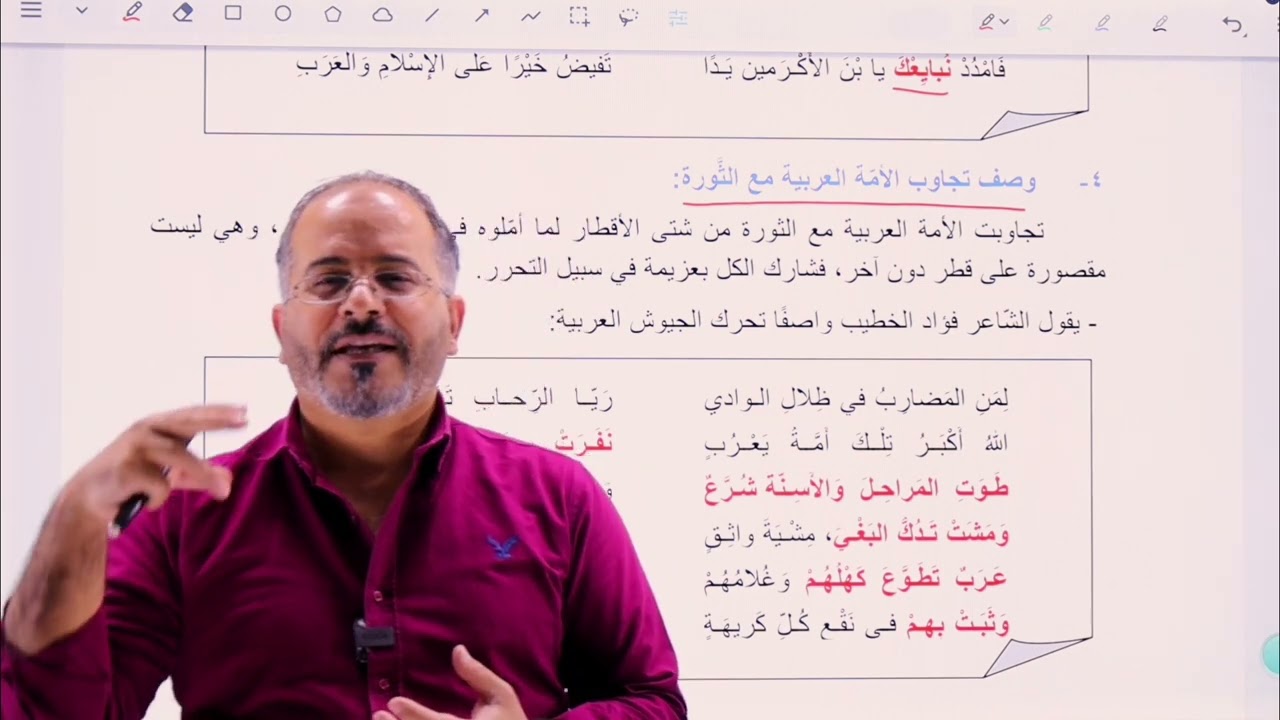 فَامْدُدْ نُبايِعْكَ يا بْنَ الأَكْـرَمين يَـدًا تَفيضُ خَيْرًا عَلى الإِسْلامِ وَالعَرَبِ
٤- وصف تجاوب الأمّة العربية مع الثَّورة:
تجاوبت الأمة العربية مع الثورة من شتى الأقطار لما أمّلوه في ، وهي ليست
مقصورة على قطر دون آخر، فشارك الكل بعزيمة في سبيل التحرر.
- يقول الشّاعر فؤاد الخطيب واصفًا تحرك الجيوش العربية:
لِمَنِ المَضارِبُ في ظِلالِ الـوادي رَيّـا الرِّحـابِ
اللهُ أَكْبَـرُ تِلْـكَ أُمَّـةُ يَعْـرُبٍ نَفَـرَتْ
طَـوَتِ المَراحِـلَ وَالأَسِـنَّة شُـرَّعٌ
وَمَشَتْ تَـدُكُّ البَغْـيَ، مِشْـيَةَ واثِـقٍ
عَـرَبٌ تَطَـوَّعَ كَهْلُهُـمْ وَغُلامُهُـمْ
وَثَبَـتْ بِهِمْ فـي نَقْـعِ كُـلِّ كَريهَـةٍ